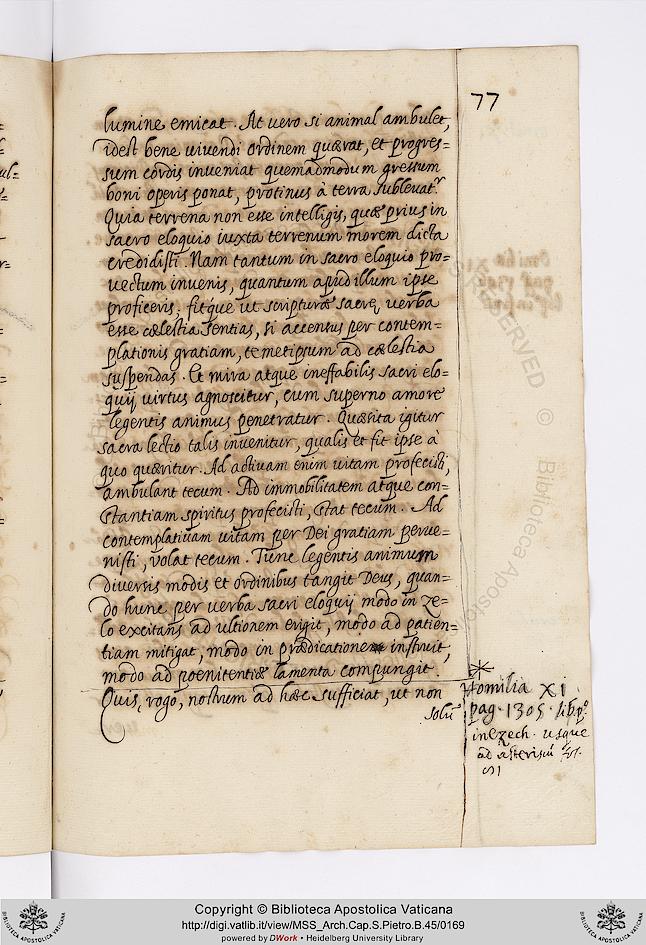 77
lumine emicat. At uero si animal ambulet,
idest bene uiuendi ordinem quærat, et progres=
sum cordis inueniat quemadmodum gressum
boni operis ponat, protinus à terra subleuatʳ
Quia terrena non esse intelligis, quæ prius in
sacro eloquio iuxta terrenum morem dicta
credidisti. Nam tantum in sacro eloquio pro=
uectum inuenis, quantum apud illum ipse
proficeris. fitq́ue ut scripturæ sacrę uerba
esse cælestia sentias, si accensus per contem=
plationis gratiam, temetipsum ad cælestia
suspendas. Et mira atque ineffabilis sacri elo=
quij uirtus agnoscitur, cum superno amore
legentis animus penetratur. Quæsita igitur
sacra lectio talis inuenitur, qualis et fit ipse à
quo quæritur. Ad actiuam enim uitam profecisti,
ambulant tecum. Ad immobilitatem atque con=
stantiam spiritus profecisti, stat tecum. Ad
contemplatiuam uitam per Dei gratiam perue=
nisti, uolat tecum. Tunc legentis animum
diuersis modis et órdinibus tangit Deus, quan=
do hunc per uerba sacri eloquij modo in ze=
lo excitans ad ultionem erigit, modo ad patien=
tiam mitigat, modo in prædicatione instruit,
modo ad poenitentiæ lamenta compungit.
Quis, rogo, nostrum ad hæc sufficiat, ut non
solũ
Homilia XI
pag. 1305. lib. pº
in Ezech. usque
ad asteriscũ
S RESERVED © Biblioteca Aposto
Copyright © Biblioteca Apostolica Vaticana
http://digi.vatlib.it/view/MSS_Arch.Cap.S.Pietro.B.45/0169
powered by DWork • Heidelberg University Library
BIBLIOTECA APOSTOLICA VATICANA
BIBLIOTECA APOSTOLICA VATICANA